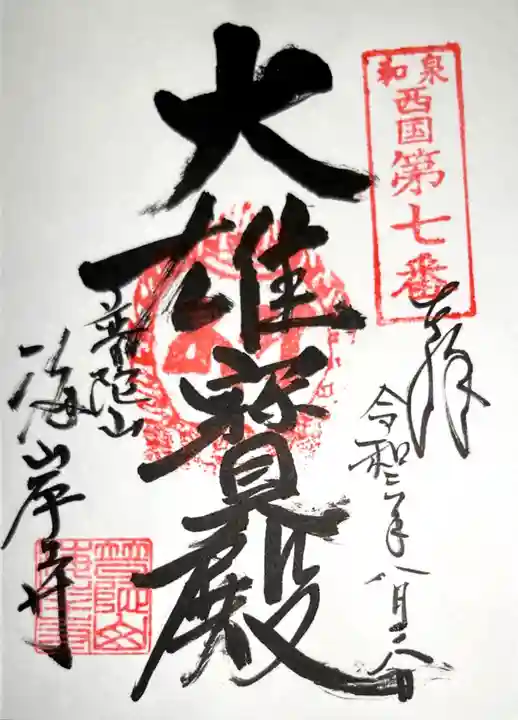 和泉
西国第七番
奉拝
令和二年八月八日
大雄寳殿
普陀山
海岸寺